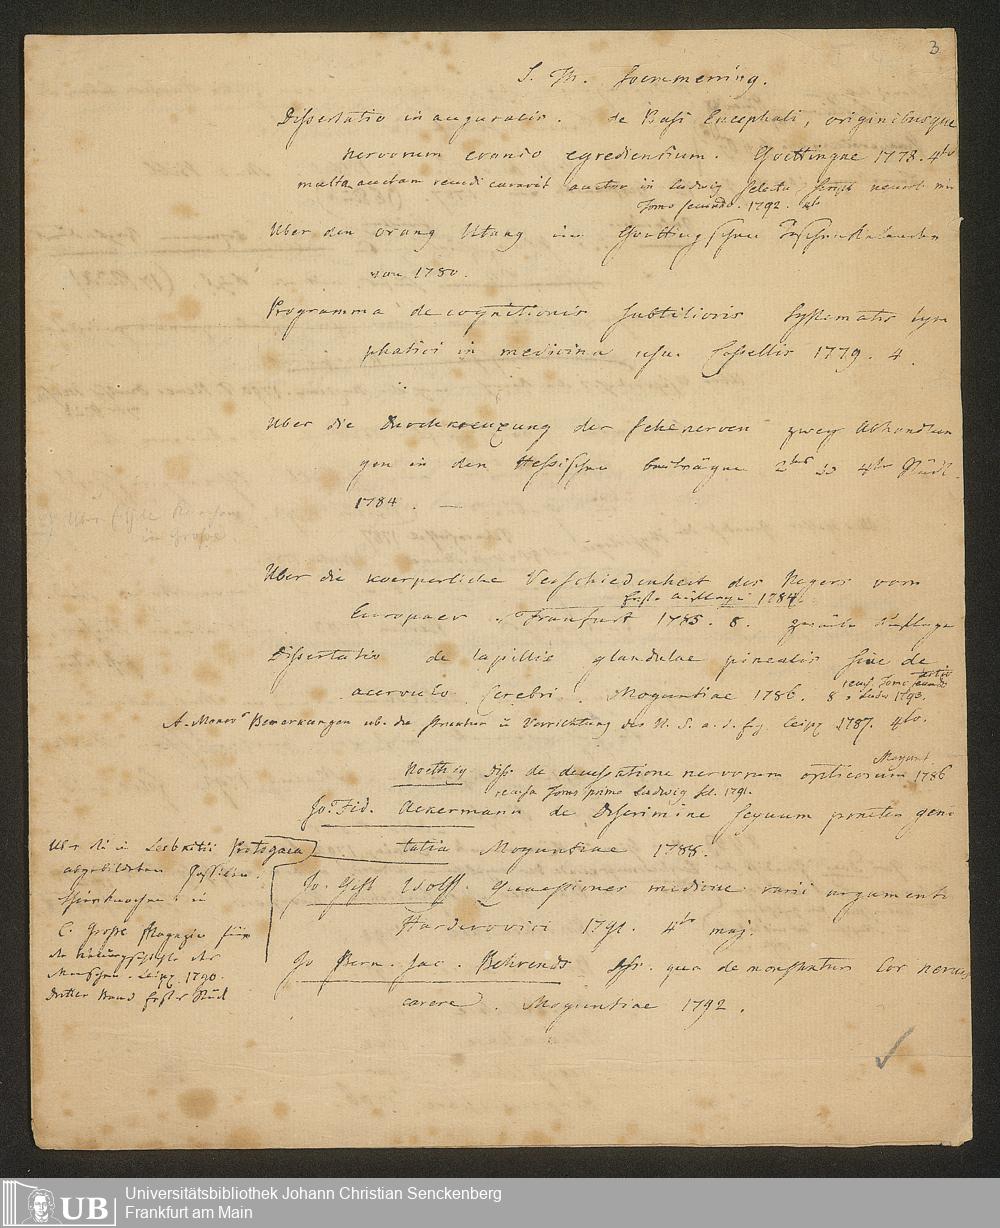 3
S. Th. Soemmerring.
Dissertatio inauguralis. de Basi Encephali, originibusque
nervorum cranio egredientium. Goettingae 1778. 4to
multa auctam reudi curavit auctor in Ludwig Selecta Script neurol min
Tomo secundo. 1792. 4to
Uber den Orang Utang im Goettingschen Taschenkalender
von 1780.
Programma de cognitionis subtilioris Systematis lym
phatici in medicina usu. Cassellis 1779. 4.
Uber die Durchkreuzung der Sehenerven zwey Abhandlun
gen in den Hessischen beiträgen 2tes 4tes Stück.
1784. —
Uber die koerperliche Verschiedenheit des Negers vom
Erste Auflage 1784
Europaer. Franfurt 1785. 8. zweite Auflage
Dissertatio de lapillis glandulae pinealis sive de
acervulo Cerebri. Moguntiae 1786. 8
recus. Tomo tertio Ludw 1793.
A. Monro's Bemerkungen üb. die Structur u Verrichtung des N. S. a. d. Eng Leipz 1787. 4to.
Noethig diss. de decussatione nervorum opticorum Mogunt. 1786
recusa Tomo primo Ludwig sel. 1791.
Jo. Fid. Ackermann de Discrimine sexuum praeter geni
talia Moguntiae 1788.
Jo. Gisb Wolff. Quaestiones medicae varii argumenti
Harderovici 1791. 4to maj.
Jo Bern. Jac. Behrends Diss. qua demonstratur Cor nervis
carere. Moguntiae 1792.
Uber die in Leibnitii Protogaea
abgebildeten fossilen
Thierknochen in
C. Grosse Magazin für
die Naturgeschichte des
Menschen. Leipz 1790.
Dritter Band Erstes Stück
Universitätsbibliothek Johann Christian Senckenberg
Frankfurt am Main
UB